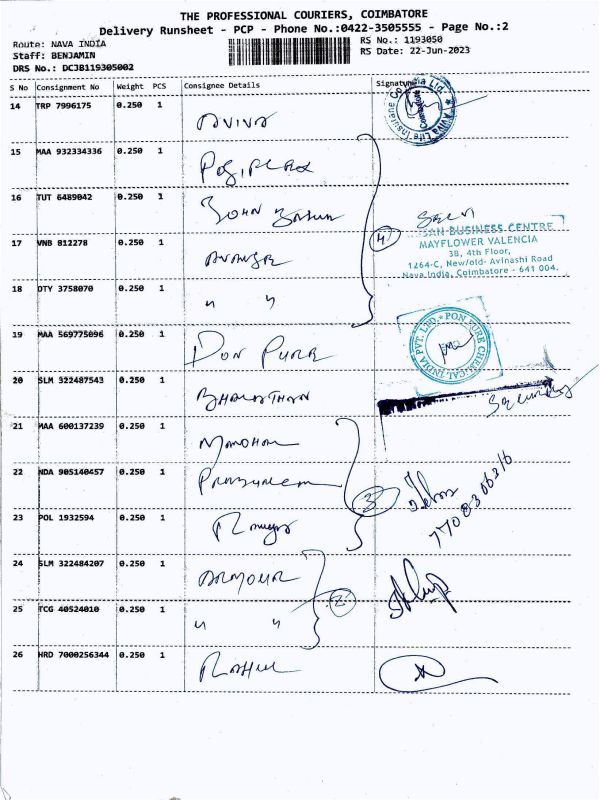 THE PROFESSIONAL COURIERS, COIMBATORE
Delivery Runsheet - PCP - Phone No.:0422-3505555 - Page No.:2
Route: NAVA INDIA RS No.: 1193050
Staff: BENJAMIN RS Date: 22-Jun-2023
DRS No.: DCJB119305002
S No Consignment No Weight PCS Consignee Details Signature
14 TRP 7996175 0.250 1 AVIVA
Aviva Life Insurance Co India Ltd.
Coimbatore
15 MAA 932334336 0.250 1
16 TUT 6489042 0.250 1 JOHN
17 VNB 812278 0.250 1
4
BUSINESS CENTRE
MAYFLOWER VALENCIA
3B, 4th Floor,
1264-C, New/old- Avinashi Road
Nava India, Coimbatore - 641 004.
18 DTY 3758070 0.250 1 " "
19 MAA 569775096 0.250 1 PON PURE
PON PURE CHEMICAL INDIA PVT. LTD.
20 SLM 322487543 0.250 1 BHARATHAN
Security
21 MAA 600137239 0.250 1 MANOHAR
22 NDA 905140457 0.250 1
3
7708306316
23 POL 1932594 0.250 1
24 SLM 322484207 0.250 1 ARMOUR
2
25 TCG 40524010 0.250 1 " "
26 HRD 7000256344 0.250 1 RAHUL